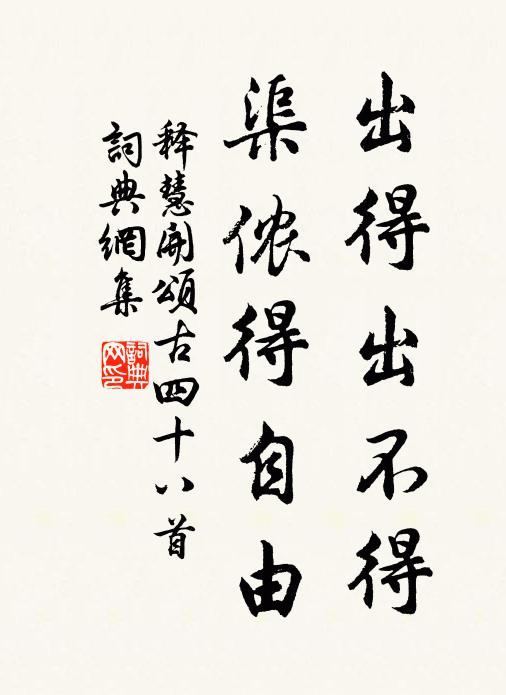 出得出不得
渠侬得自由
释慧開頌古四十八首
詞典網集
詞典网印